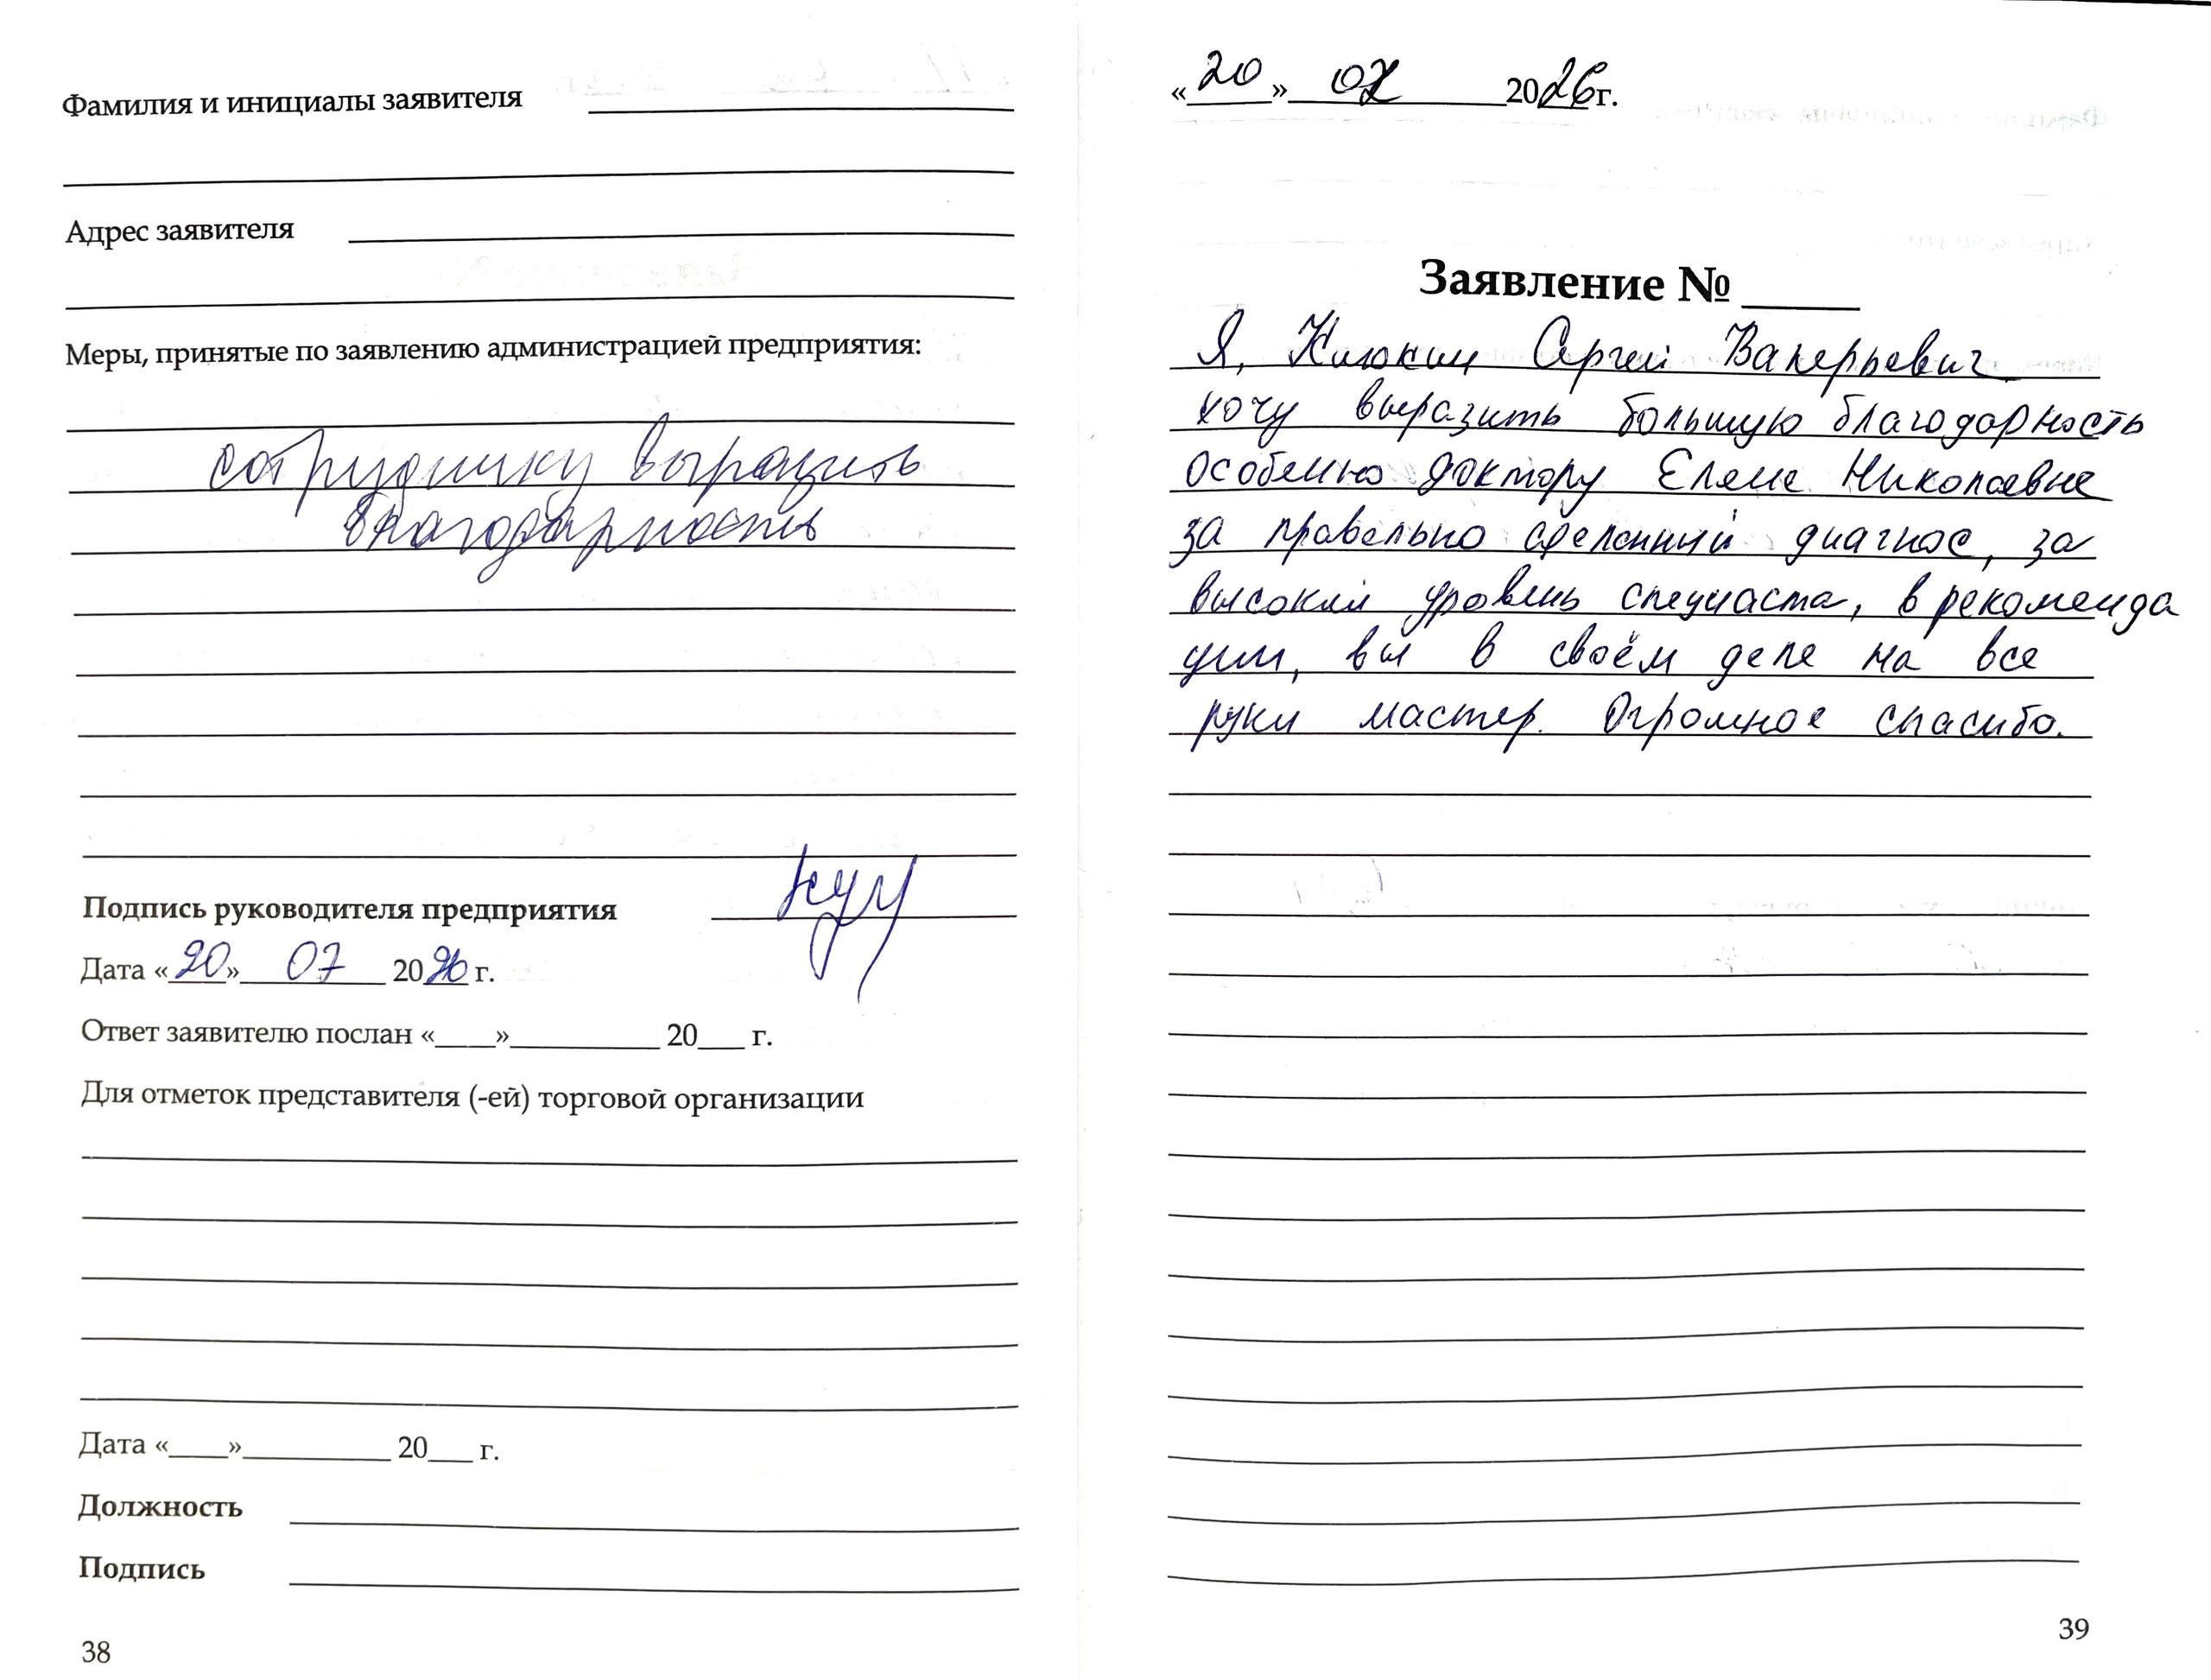 Фамилия и инициалы заявителя
Адрес заявителя
Меры, принятые по заявлению администрацией предприятия:
сотруднику выразить
благодарность
Подпись руководителя предприятия
Дата «20» 07 2026 г.
Ответ заявителю послан «___» 20___ г.
Для отметок представителя (-ей) торговой организации
Дата «___» 20___ г.
Должность
Подпись
38
«20» 07 2026г.
Заявление № ____
Я, Клюкин Сергей Валерьевич
хочу выразить большую благодарность
особенно доктору Елене Николаевне
за правельно сделанный диагнос, за
высокий уровень специаста, в рекоменда
ции, вы в своём деле на все
руки мастер. Огромное спасибо.
39